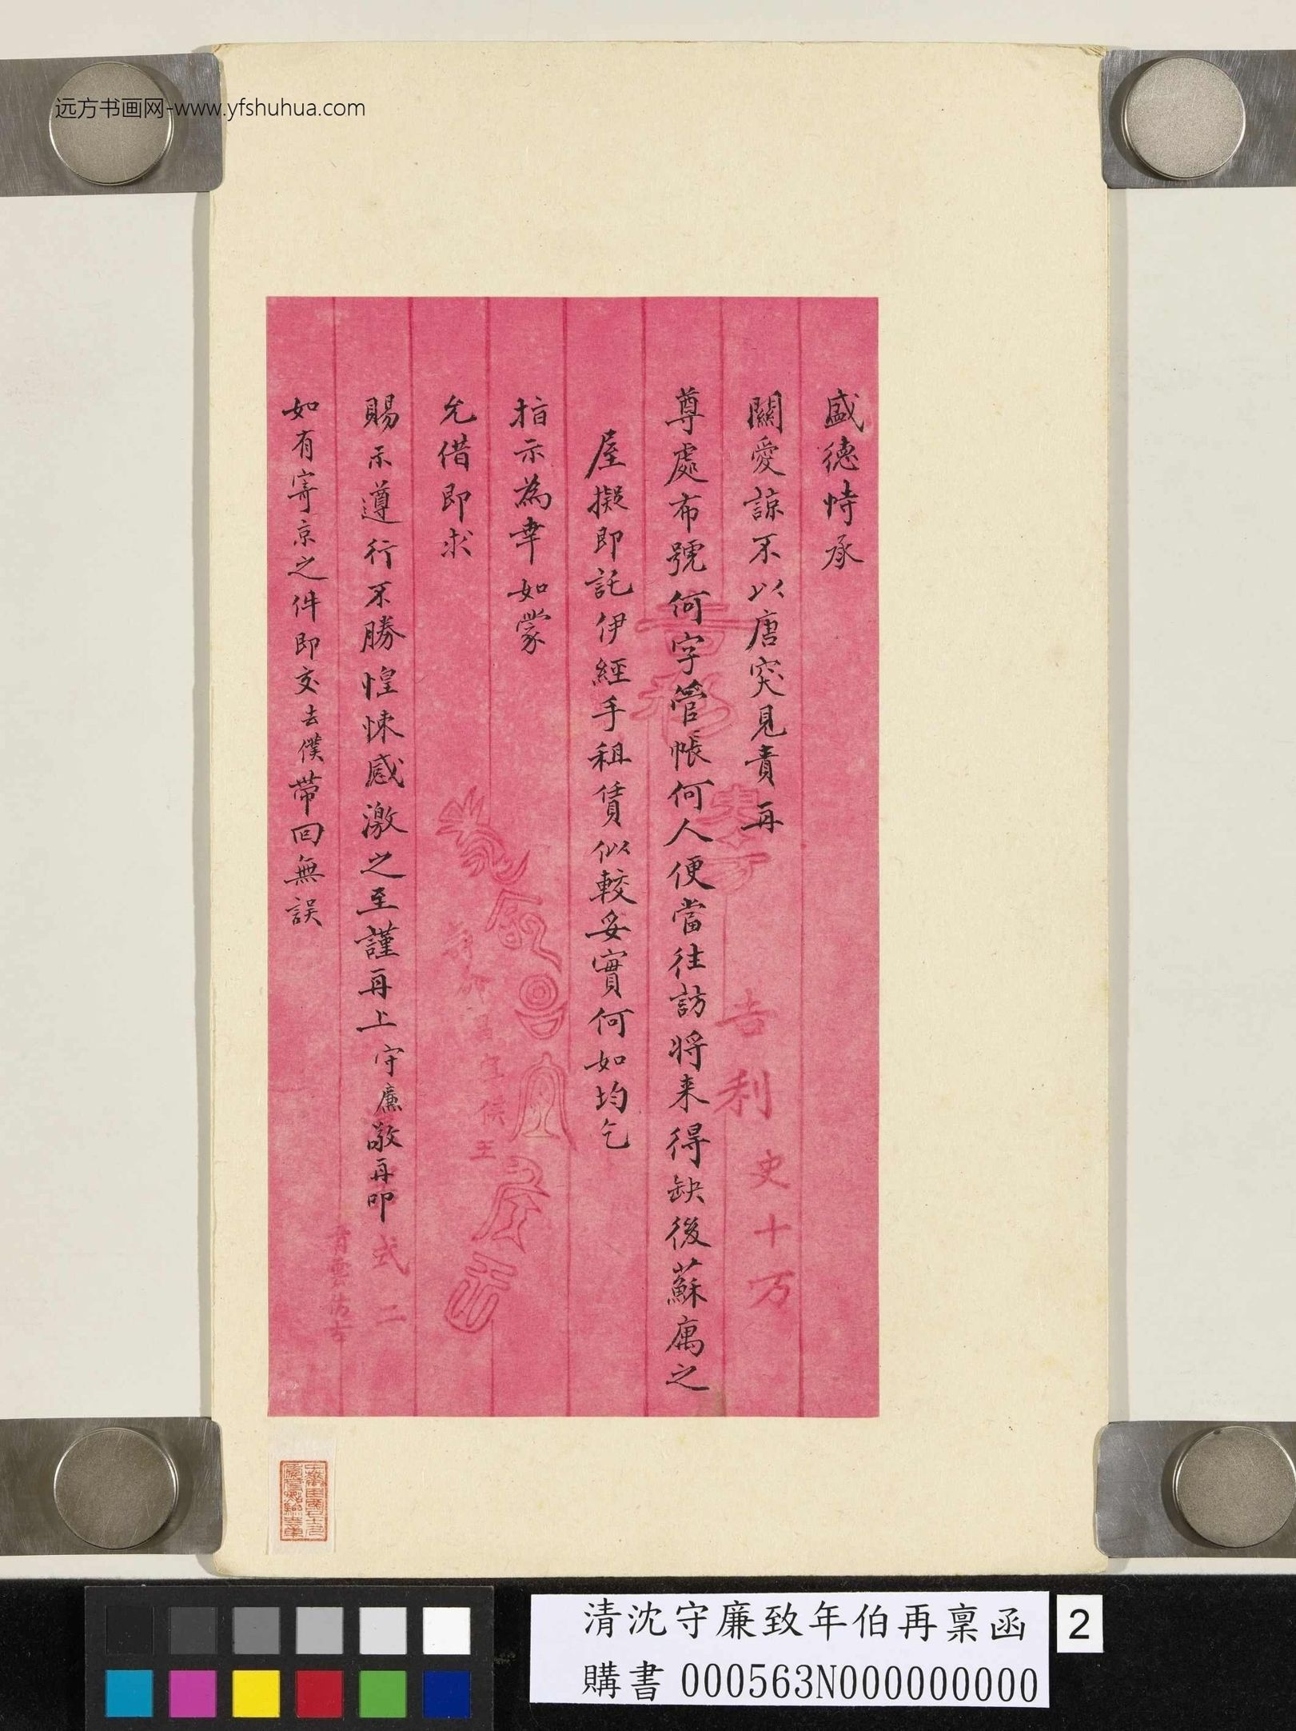 远方书画网-www.yfshuhua.com
盛德恃承
關愛諒不以唐突見責再
尊處布號何字管帳何人便當往訪將来得缺後蘇寓之
屋擬即託伊經手租賃似較妥實何如均乞
指示為幸如蒙
允借即求
賜示遵行不勝惶悚感激之至謹再上守廉敬再叩
如有寄京之件即交去僕帶回無誤
吉利
史十万
侯王
式二
清沈守廉致年伯再稟函
購書 000563N000000000
2